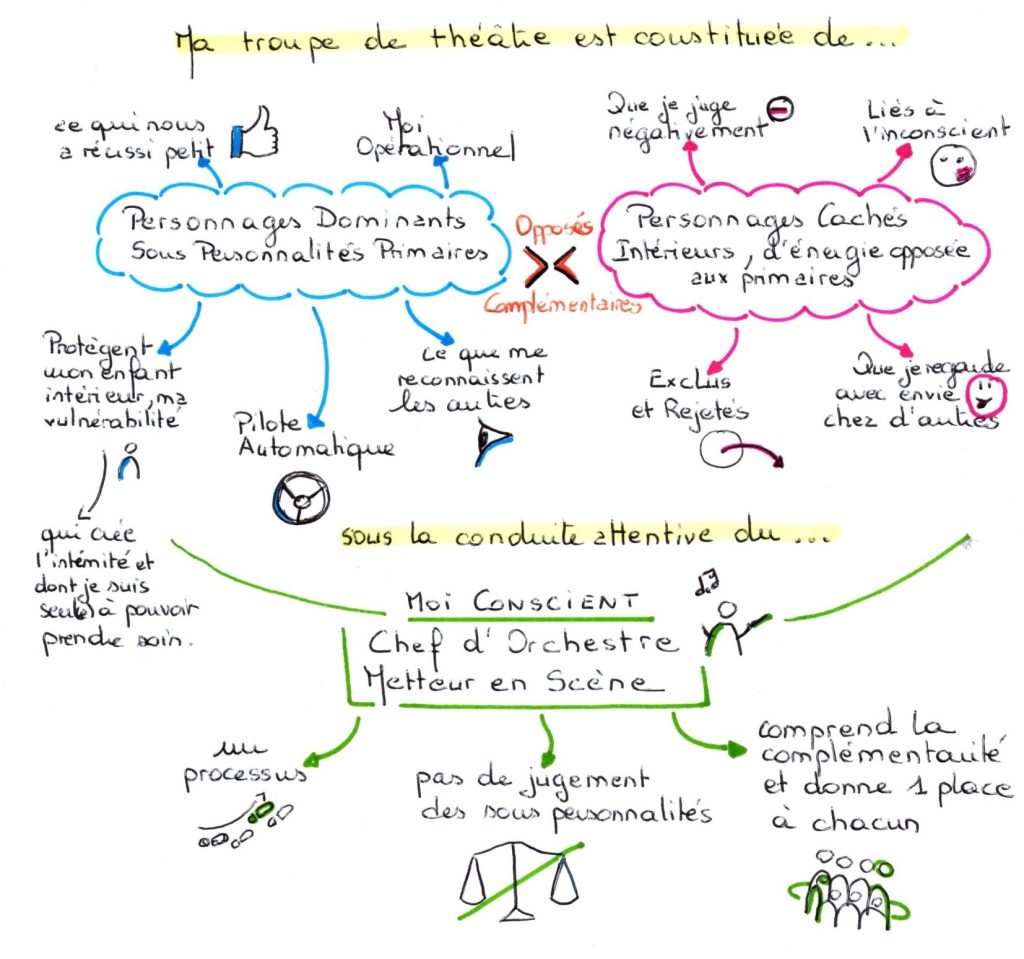 Ma troupe de théâtre est constituée de...
ce qui nous
a réussi petit
Moi
Opérationnel
Que je juge
négativement
Liés à
l'inconscient
Personnages Dominants
Sous Personnalités Primaires
Opposés
Complémentaires
Personnages Cachés
Intérieurs, d'énergie opposée
aux primaires
Protègent
mon enfant
intérieur, ma
vulnérabilité
Pilote
Automatique
ce que me
reconnaissent
les autres
Exclus
et Rejetés
Que je regarde
avec envie
chez d'autres
qui crée
l'intimité et
dont je suis
seul(e) à pouvoir
prendre soin.
sous la conduite attentive du...
Moi CONSCIENT
Chef d'Orchestre
Metteur en Scène
un
processus
pas de jugement
des sous personnalités
comprend la
complémentarité
et donne 1 place
à chacun